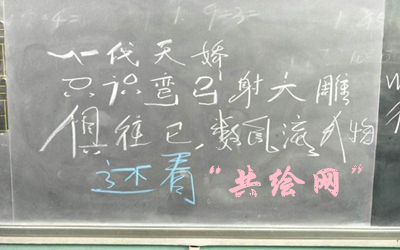 一代天娇
只识弯弓射大雕
俱往已,数风流人物
还看“共绘网”